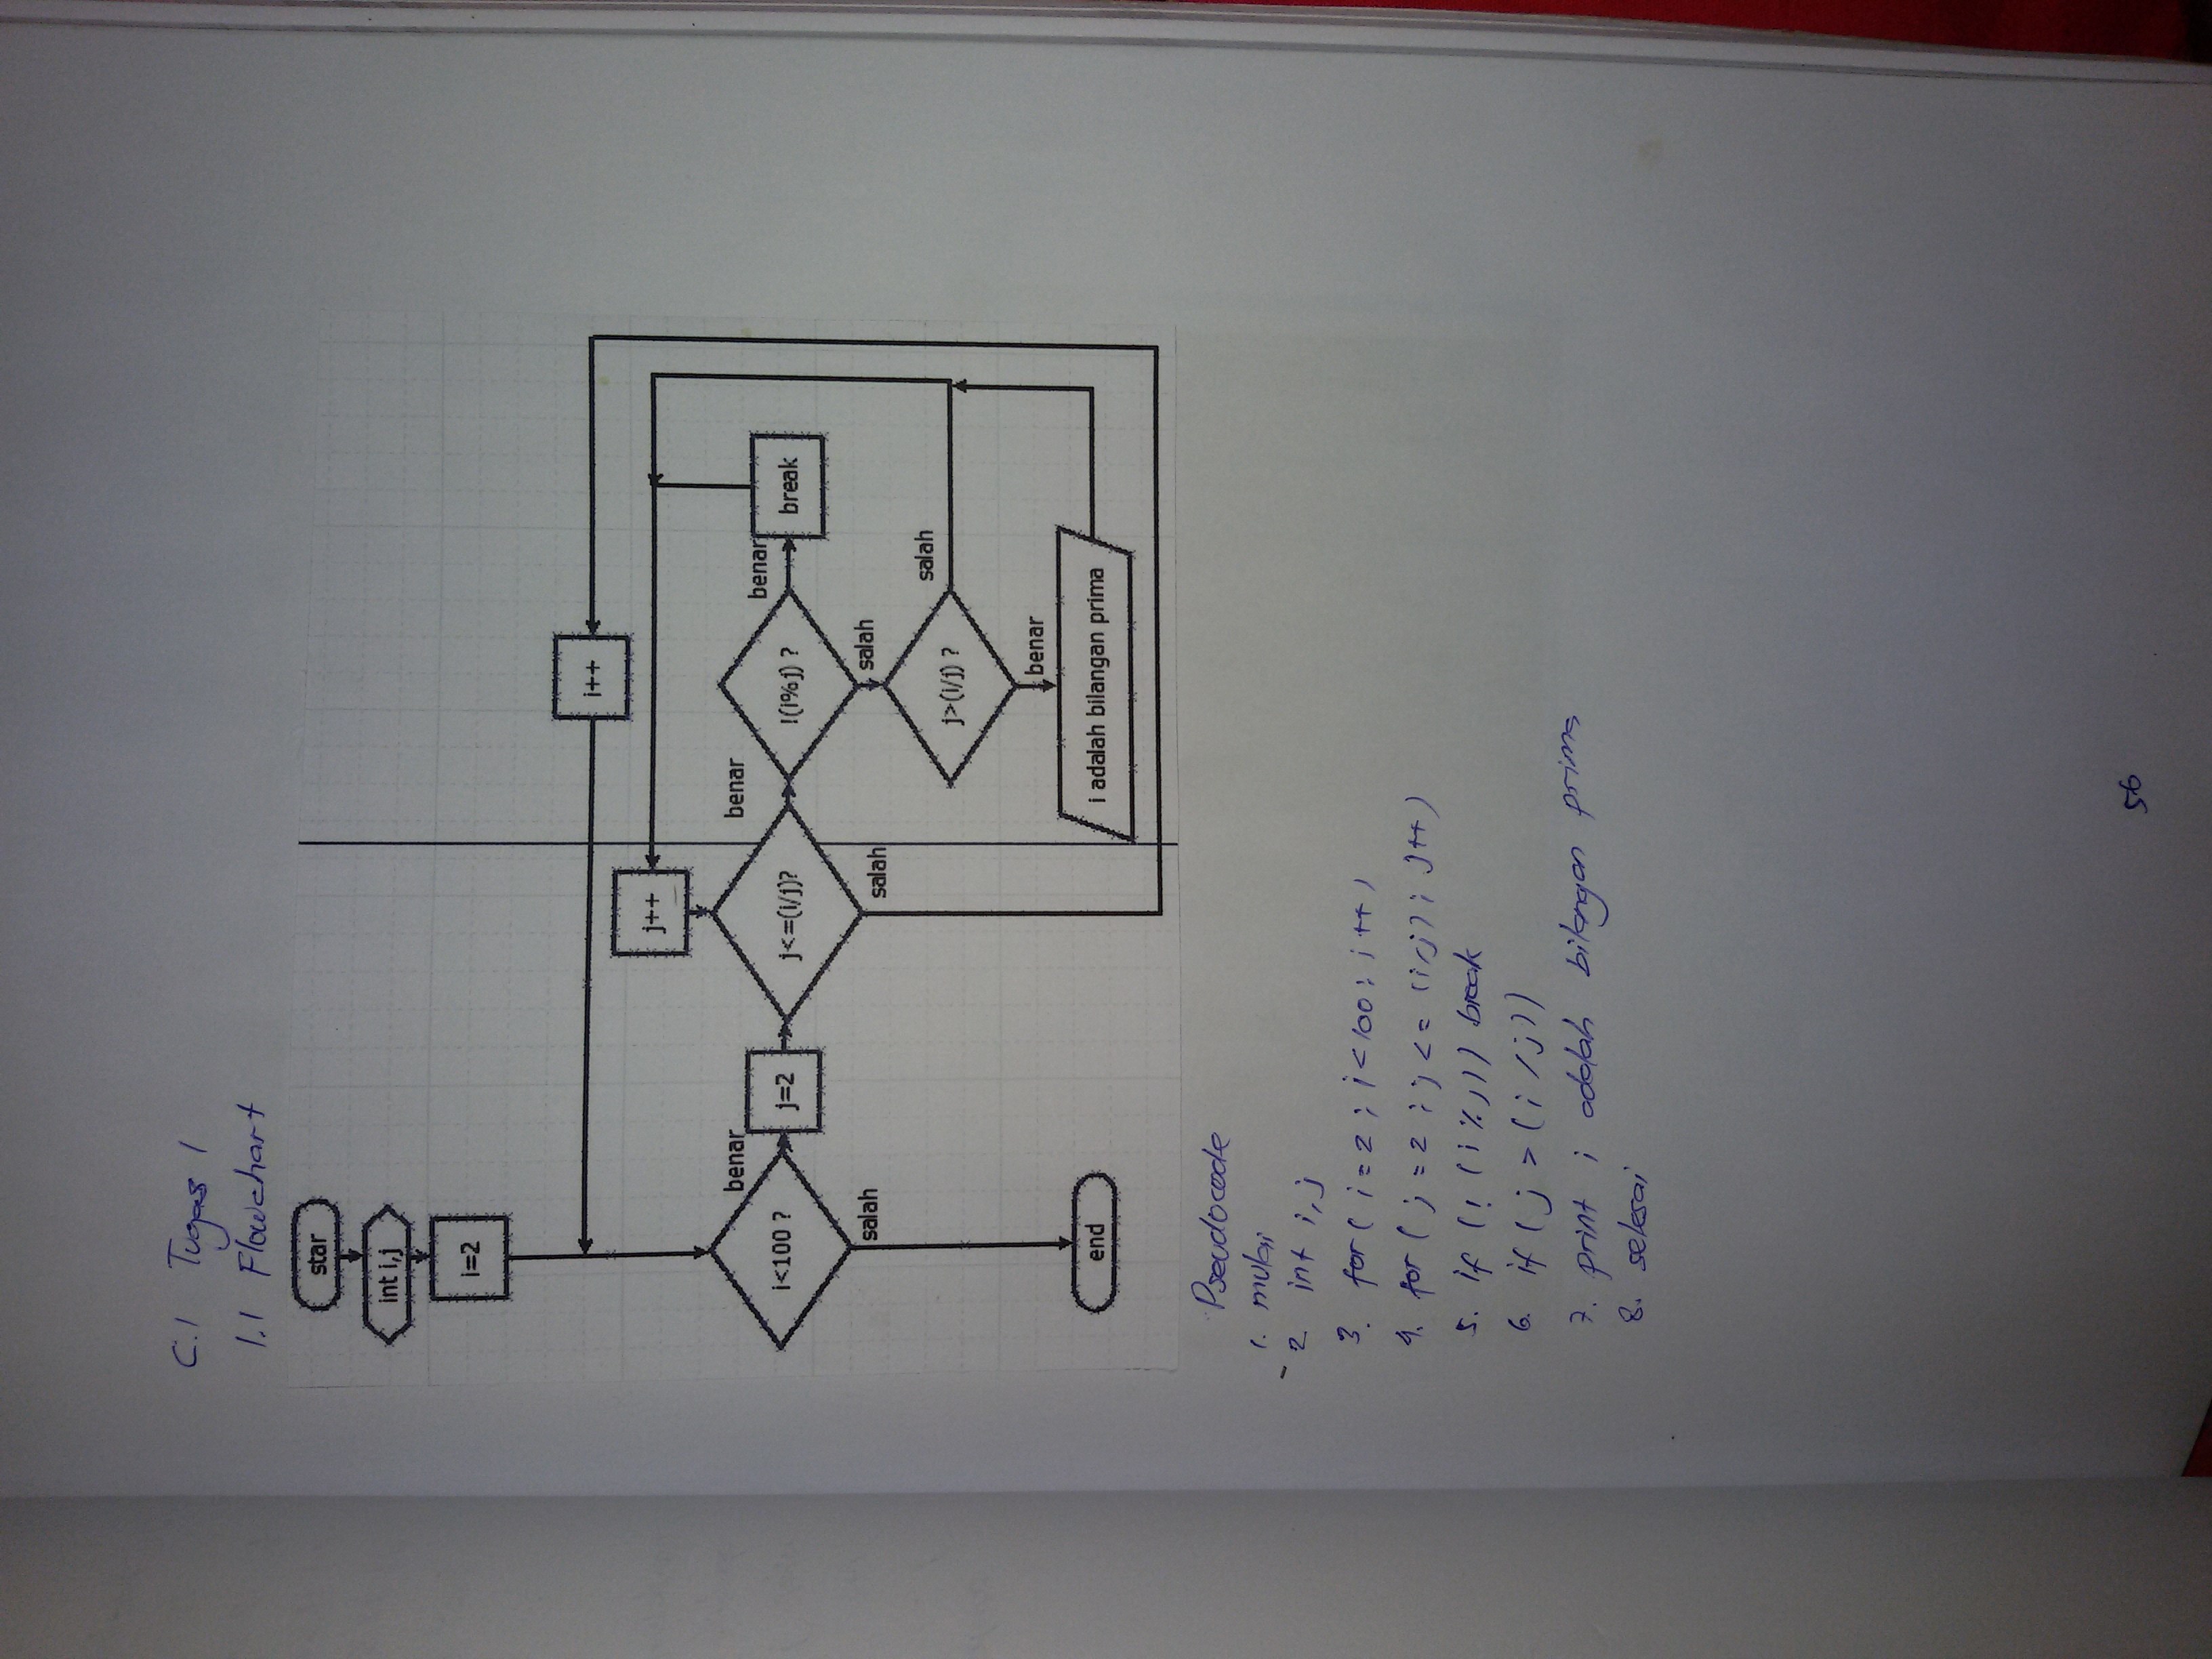 C.1 Tugas 1
1.1 Flowchart
star
int i,j
i=2
i++
j++
i<100 ?
benar
j=2
j<=(i/j)?
benar
!(i%j) ?
benar
break
salah
salah
salah
j>(i/j) ?
salah
benar
i adalah bilangan prima
end
Pseudocode
1. mulai
2 int i,j
3. for( i=2 ; i<100 ; i++ )
4. for ( j = 2 ; j <= (i/j) ; j++ )
5. if (! (i % j)) break
6. if ( j > (i /j))
7. print i adalah bilangan prima
8. selesai
56